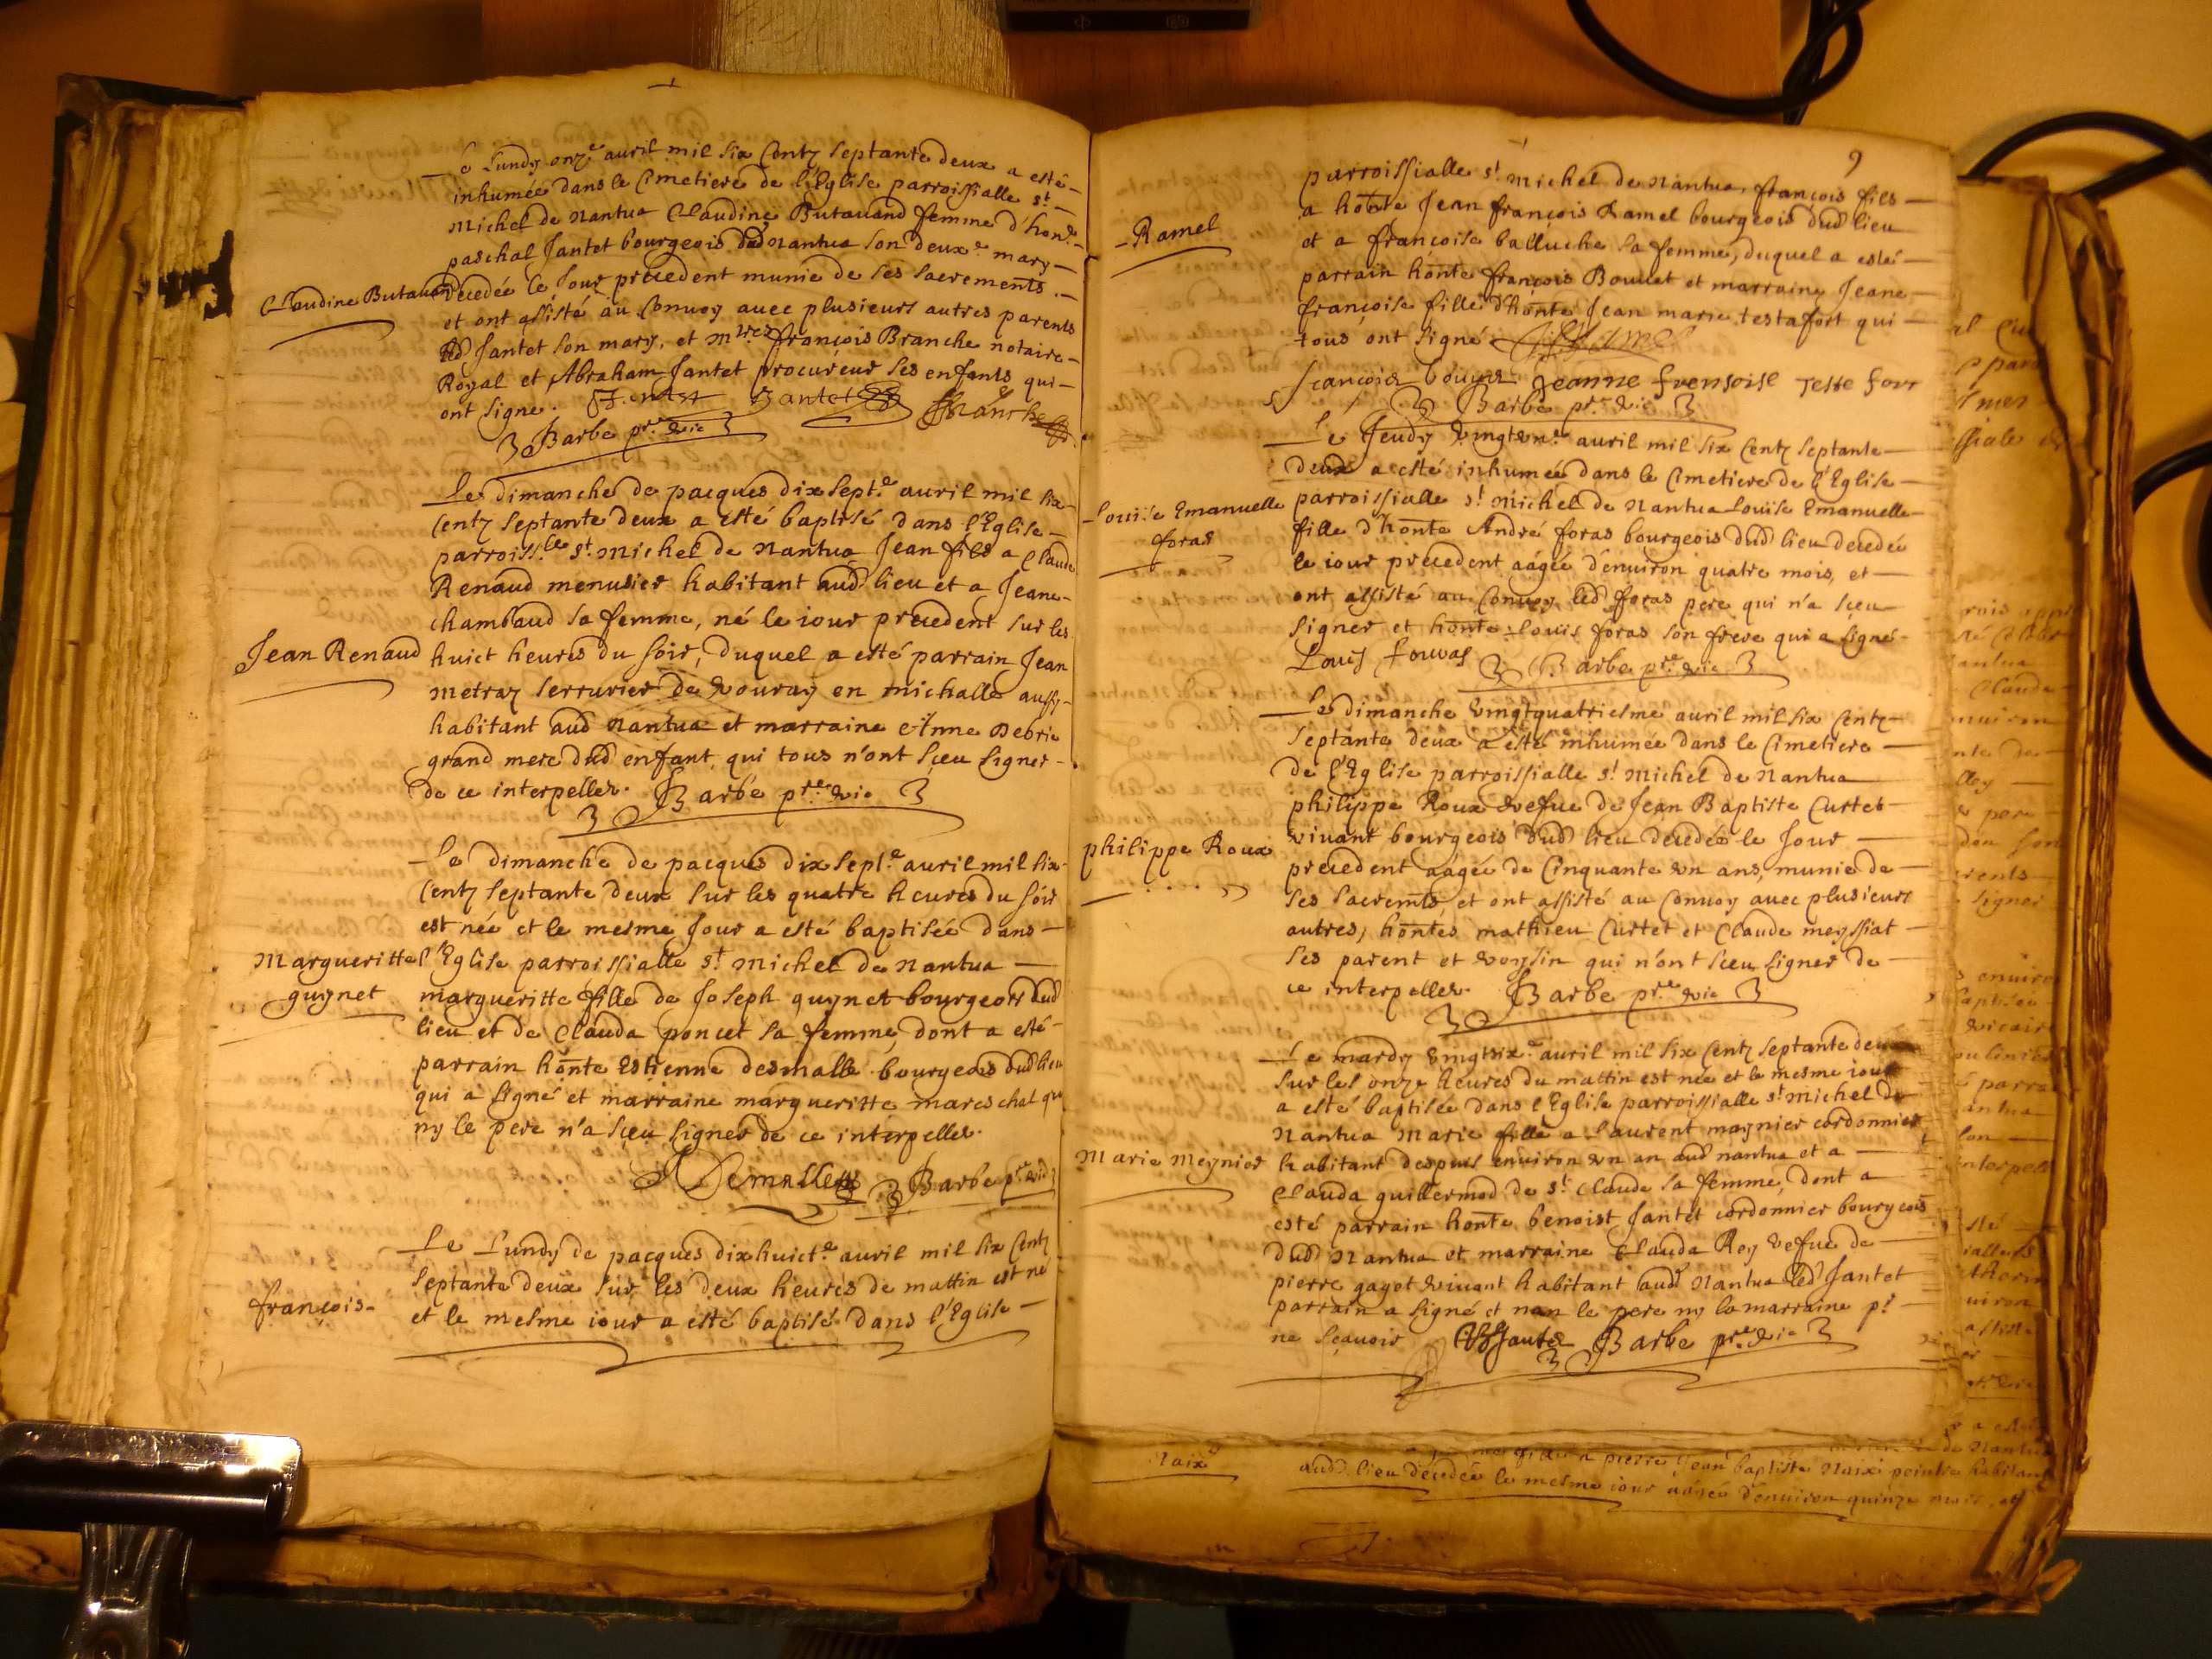 Le Lundy onz.e auril mil six Centz septante deux a esté
inhumée dans le Cimetiere de l'Eglise parroissialle st
Michel de Nantua Claudine Butauand femme d'hon.e
paschal Jantet bourgeois dud Nantua son deux.e mary
Claudine Butauand
decedée le Jour precedent munie de ses sacrements.
et ont assisté au Conuoy auec plusieurs autres parents
led Jantet son mary, et mtres françois Branche notaire
Royal et Abraham Jantet procureur ses enfants qui
ont signe. Jantet Jantet Branche
Barbe pre. vic
Le dimanche de pacques dixsept.e auril mil six
Centz septante deux a esté baptisé dans l'Eglise
parroiss.le st. Michel de Nantua Jean fils a Claude
Renaud menusier habitant aud lieu et a Jeane
chambaud sa femme, né le iour precedent sur les
Jean Renaud
huict heures du soir, duquel a esté parrain Jean
metraz serrurier de vouray en michalle aussy
habitant aud Nantua et marraine Anne Debrie
grand mere dud enfant, qui tous n'ont sceu signer
de ce interpeller. Barbe pre. vic
Le dimanche de pacques dixsept.e auril mil six
Centz septante deux sur les quatre heures du soir
est née et le mesme Jour a esté baptisée dans
Margueritte
l'Eglise parroissialle st Michel de Nantua
guynet
margueritte fille de Joseph guynet bourgeois dud
lieu et de Clauda poncet sa femme, dont a esté
parrain honte Estienne desmalle bourgeois dud lieu
qui a signé et marraine margueritte mareschal qui
ny le pere n'a sceu signer de ce interpeller.
Demalle Barbe pre. vic
Le Lundy de pacques dixhuict.e auril mil six Centz
septante deux sur les deux heures de mattin est né
françois
et le mesme iour a esté baptisé dans l'Eglise
9
parroissialle st Michel de Nantua, françois fils
a honte Jean françois Ramel bourgeois dud lieu
Ramel
et a françoise balluche sa femme, duquel a esté
parrain honte françois Bouuet et marraine Jeane
françoise fille d'honte Jean marie testafort qui
tous ont signé Ramel
françois bouuet Jeanne frensoise Teste fort
Barbe pre. vic
Le Jeudy vingtvn.e auril mil six Centz septante
deux a esté inhumée dans le Cimetiere de l'Eglise
Louise Emanuelle
parroissialle st Michel de Nantua Louise Emanuelle
foras
fille d'honte André foras bourgeois dud lieu decedée
le iour precedent aagée d'enuiron quatre mois, et
ont assisté au Conuoy led foras pere qui n'a sceu
signer et honte Louis foras son frere qui a signé
Louis fouras Barbe pre. vic
Le dimanche vingtquatriesme auril mil six Centz
septante deux a esté inhumée dans le Cimetiere
de l'Eglise parroissialle st Michel de Nantua
philippe Roux vefue de Jean Baptiste Curtet
viuant bourgeois dud lieu decedée le Jour
philippe Roux
precedent aagée de Cinquante vn ans, munie de
ses sacremts, et ont assisté au Conuoy auec plusieurs
autres, hontes mathieu Curtet et Claude meyssiat
ses parent et voysin qui n'ont sceu signer de
ce interpeller. Barbe pre. vic
Le mardy vingtsix.e auril mil six Centz septante deux
sur les onze heures du mattin est née et le mesme iour
a esté baptisée dans l'Eglise parroissialle st Michel de
Nantua Marie fille a Laurent maynier cordonnier
Marie Meynier
habitant despuis enuiron vn an aud nantua et a
Clauda guillermod de st Claude sa femme, dont a
esté parrain honte benoist Jantet cordonnier bourgeois
dud Nantua et marraine Clauda Rey vefue de
pierre gayot viuant habitant aud Nantua led Jantet
parrain a signé et nan le pere ny la marraine pr
ne scauoir BJantet Barbe pre. vic
pierre Jean baptiste Naix peintre habitant
Naix
aud lieu decedée le mesme iour aagée d'enuiron quinze mois, et